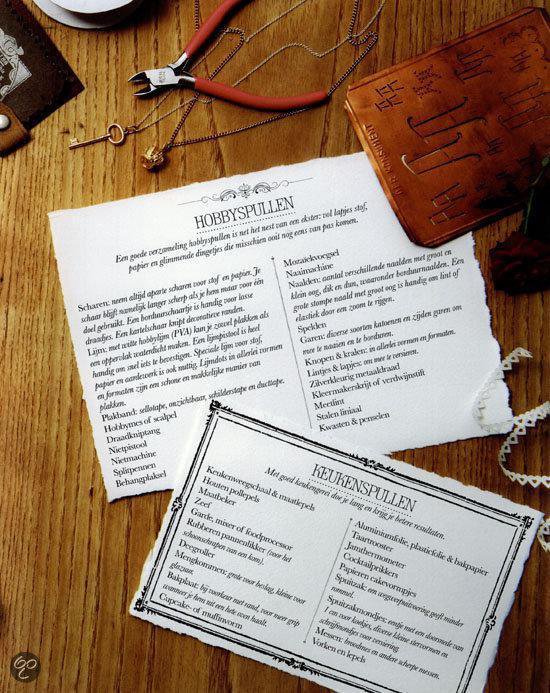 HOBBYSPULLEN
Een goede verzameling hobbyspullen is net het nest van een ekster: vol lapjes stof,
papier en glimmende dingetjes die misschien ooit nog eens van pas komen.
Scharen: neem altijd aparte scharen voor stof en papier. Je
schaar blijft namelijk langer scherp als je hem maar voor één
doel gebruikt. Een borduurschaartje is handig voor losse
draadjes. Een kartelschaar knipt decoratieve randen.
Lijm: met witte hobbylijm (PVA) kan je zowel plakken als
een oppervlak waterdicht maken. Een lijmpistool is heel
handig om snel iets te bevestigen. Speciale lijm voor stof,
papier en aardewerk is ook nuttig. Lijmdots in allerlei vormen
en formaten zijn een schone en makkelijke manier van
plakken.
Plakband: sellotape, onzichtbaar, schilderstape en ducttape.
Hobbymes of scalpel
Draadkniptang
Nietpistool
Nietmachine
Splitpennen
Behangplaksel
Mozaïekvoegsel
Naaimachine
Naalden: aantal verschillende naalden met groot en
klein oog, dik en dun, waaronder borduurnaalden. Een
grote stompe naald met groot oog is handig om lint of
elastiek door een zoom te rijgen.
Spelden
Garen: diverse soorten katoenen en zijden garen om
mee te naaien en te borduren.
Knopen & kralen: in allerlei vormen en formaten.
Lintjes & lapjes: om mee te versieren.
Zilverkleurig metaaldraad
Kleermakerskrijt of verdwijnstift
Meetlint
Stalen liniaal
Kwasten & penselen
KEUKENSPULLEN
Met goed keukengerei doe je lang en krijg je betere resultaten.
Keukenweegschaal & maatlepels
Houten pollepels
Maatbeker
Zeef
Garde, mixer of foodprocessor
Rubberen pannenlikker (voor het
schoonschrapen van een kom).
Deegroller
Mengkommen: grote voor beslag, kleine voor
glazuur.
Bakplaat: bij voorkeur met rand, voor meer grip
wanneer je hem uit een hete oven haalt.
Cupcake- of muffinvorm
Aluminiumfolie, plasticfolie & bakpapier
Taartrooster
Jamthermometer
Cocktailprikkers
Papieren cakevormpjes
Spuitzak: een wegwerpuitvoering geeft minder
rommel.
Spuitzakmondjes: eentje met een doorsnede van
1 cm voor koekjes, diverse kleine stervormen en
schrijfmondjes voor versiering.
Messen: broodmes en andere scherpe messen.
Vorken en lepels